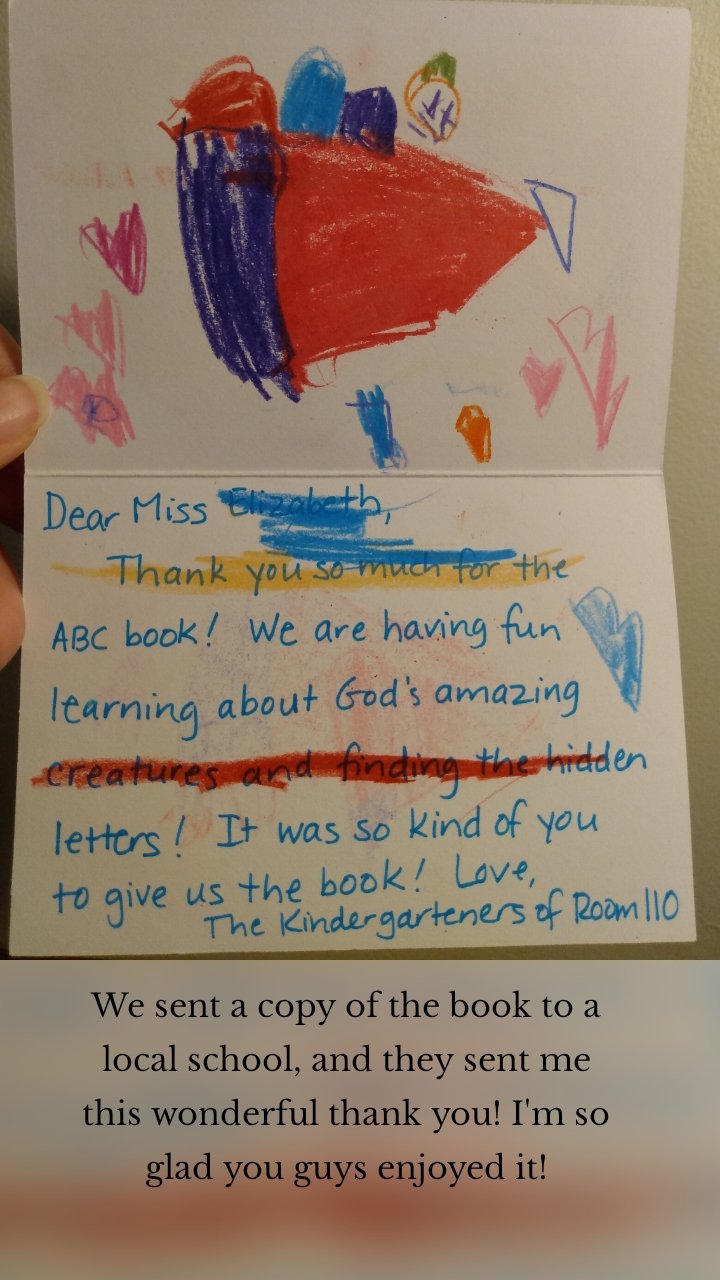 Dear Miss Elizabeth,
Thank you so much for the
ABC book! We are having fun
learning about God's amazing
creatures and finding the hidden
letters! It was so kind of you
to give us the book! Love,
The Kindergarteners of Room 110
We sent a copy of the book to a
local school, and they sent me
this wonderful thank you! I'm so
glad you guys enjoyed it!